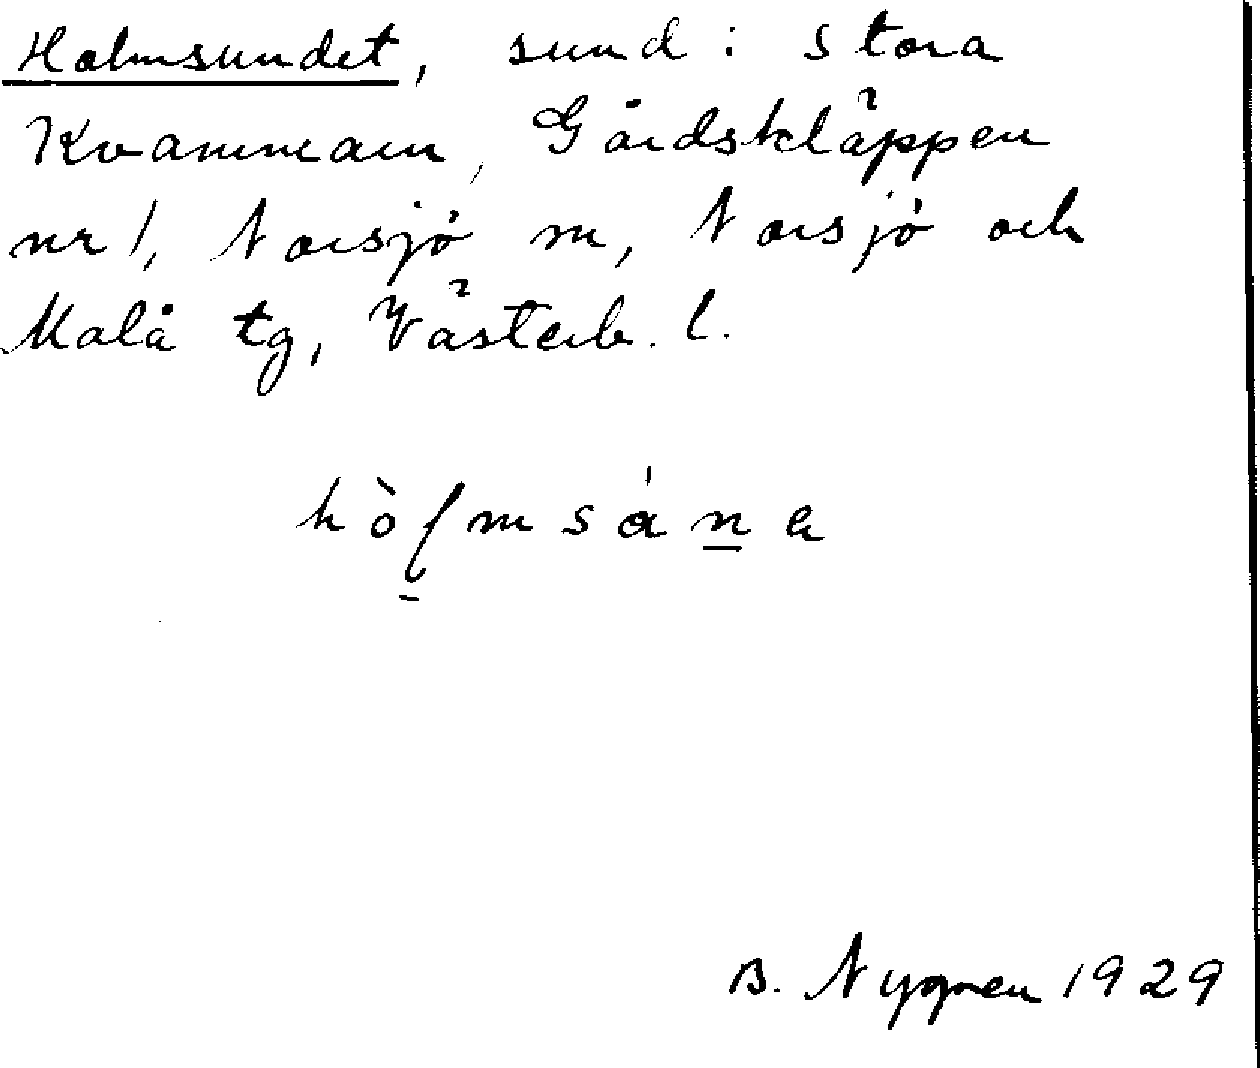 Holmsundet, sund i Stora
Kvammarn, Gårdskläppen
nr 1, Norsjö sn, Norsjö och
Malå tg, Västerb. l.
B. Nygren 1929